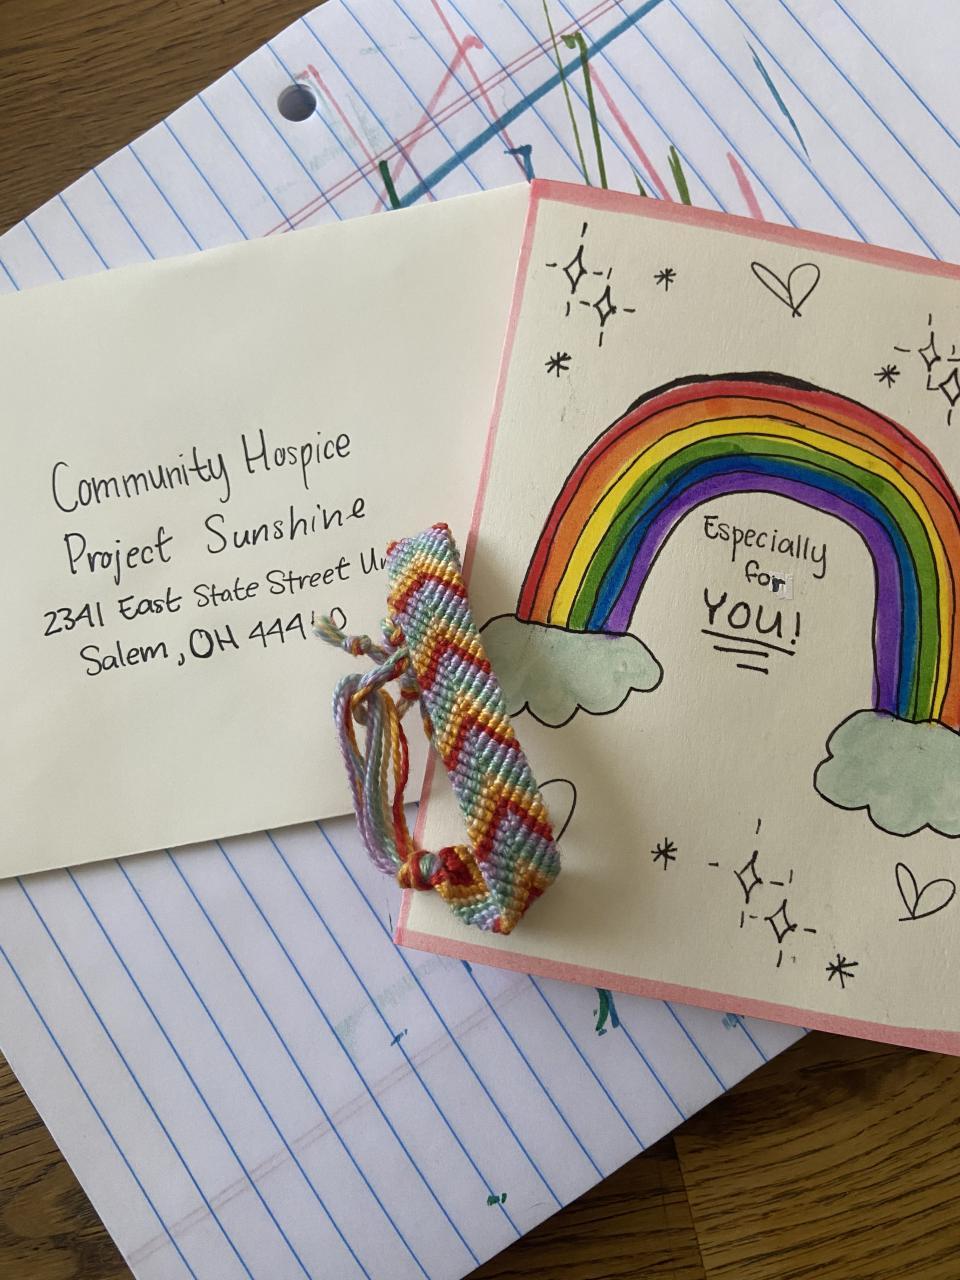 Community Hospice
Project Sunshine
2341 East State Street
Salem, OH 44460
Especially
for
YOU!